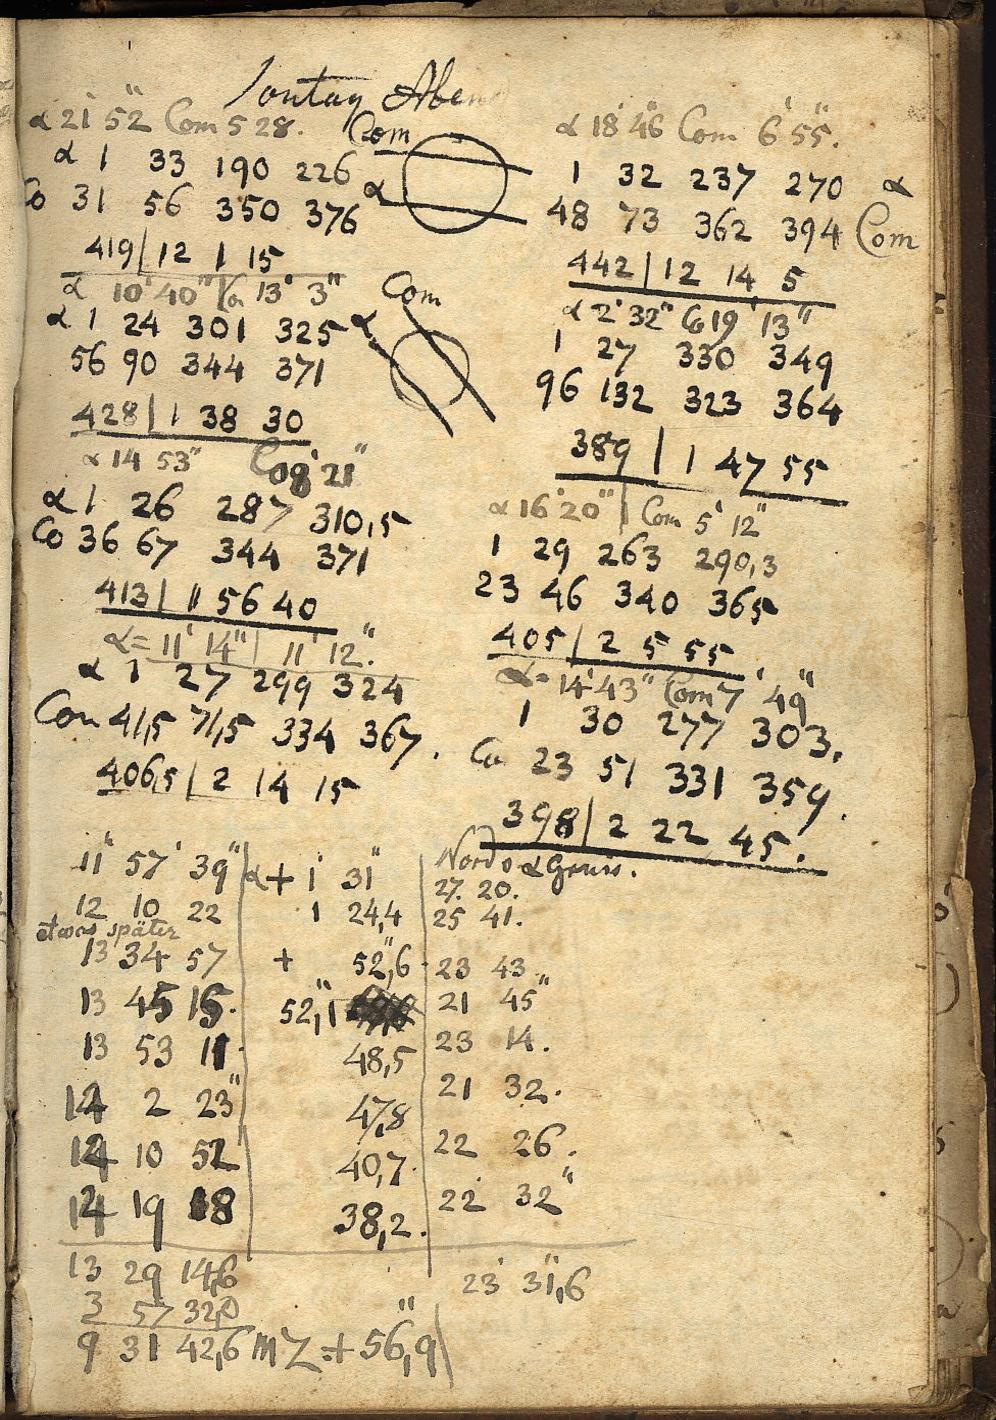 Sontag Abend
α 21' 52" Com 5 28.
Com
α 1 33 190 226
α
Co 31 56 350 376
419 | 12 1 15
α 10' 40" Co 13' 3"
Com
α 1 24 301 325
α
56 90 344 371
428 | 1 38 30
α 14 53" Co 8' 21"
α 1 26 287 310,5
Co 36 67 344 371
413 | 1 56 40
α = 11' 14" | 11' 12".
α 1 27 299 324
Com 41,5 71,5 334 367.
406,5 | 2 14 15
α 18' 46" Com 6' 55".
1 32 237 270 α
48 73 362 394 Com
442 | 12 14 5
α 2' 32" Co 19' 13"
1 27 330 349
96 132 323 364
389 | 1 47 55
α 16' 20" | Com 5' 12"
1 29 263 290,3
23 46 340 365
405 | 2 5 55
α = 14' 43" Com 7' 49"
1 30 277 303.
Co 23 51 331 359.
398 | 2 22 45.
Nord α
11 57' 39" α + 1' 31" 27. 20.
12 10 22 1 24,4 25 41.
etwas später
13 34 57 + 52,6" 23 43
13 45 15. 52,1" 21 45"
13 53 11. 48,5 23 14.
14 2 23" 47,8 21 32.
14 10 52 40,7. 22 26.
14 19 18 38,2. 22 32"
13 29 14,6 23' 31",6
3 57 32,0
9 31 42,6 m Z = + 56",9